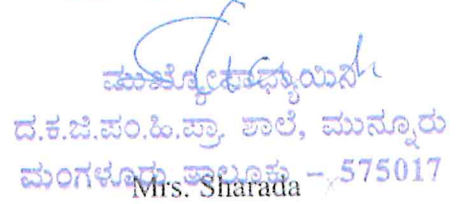 ಮುಖ್ಯೋಪಾಧ್ಯಾಯಿನಿ
ದ.ಕ.ಜಿ.ಪಂ.ಹಿ.ಪ್ರಾ. ಶಾಲೆ, ಮುನ್ನೂರು
ಮಂಗಳೂರು ತಾಲೂಕು – 575017
Mrs. Sharada